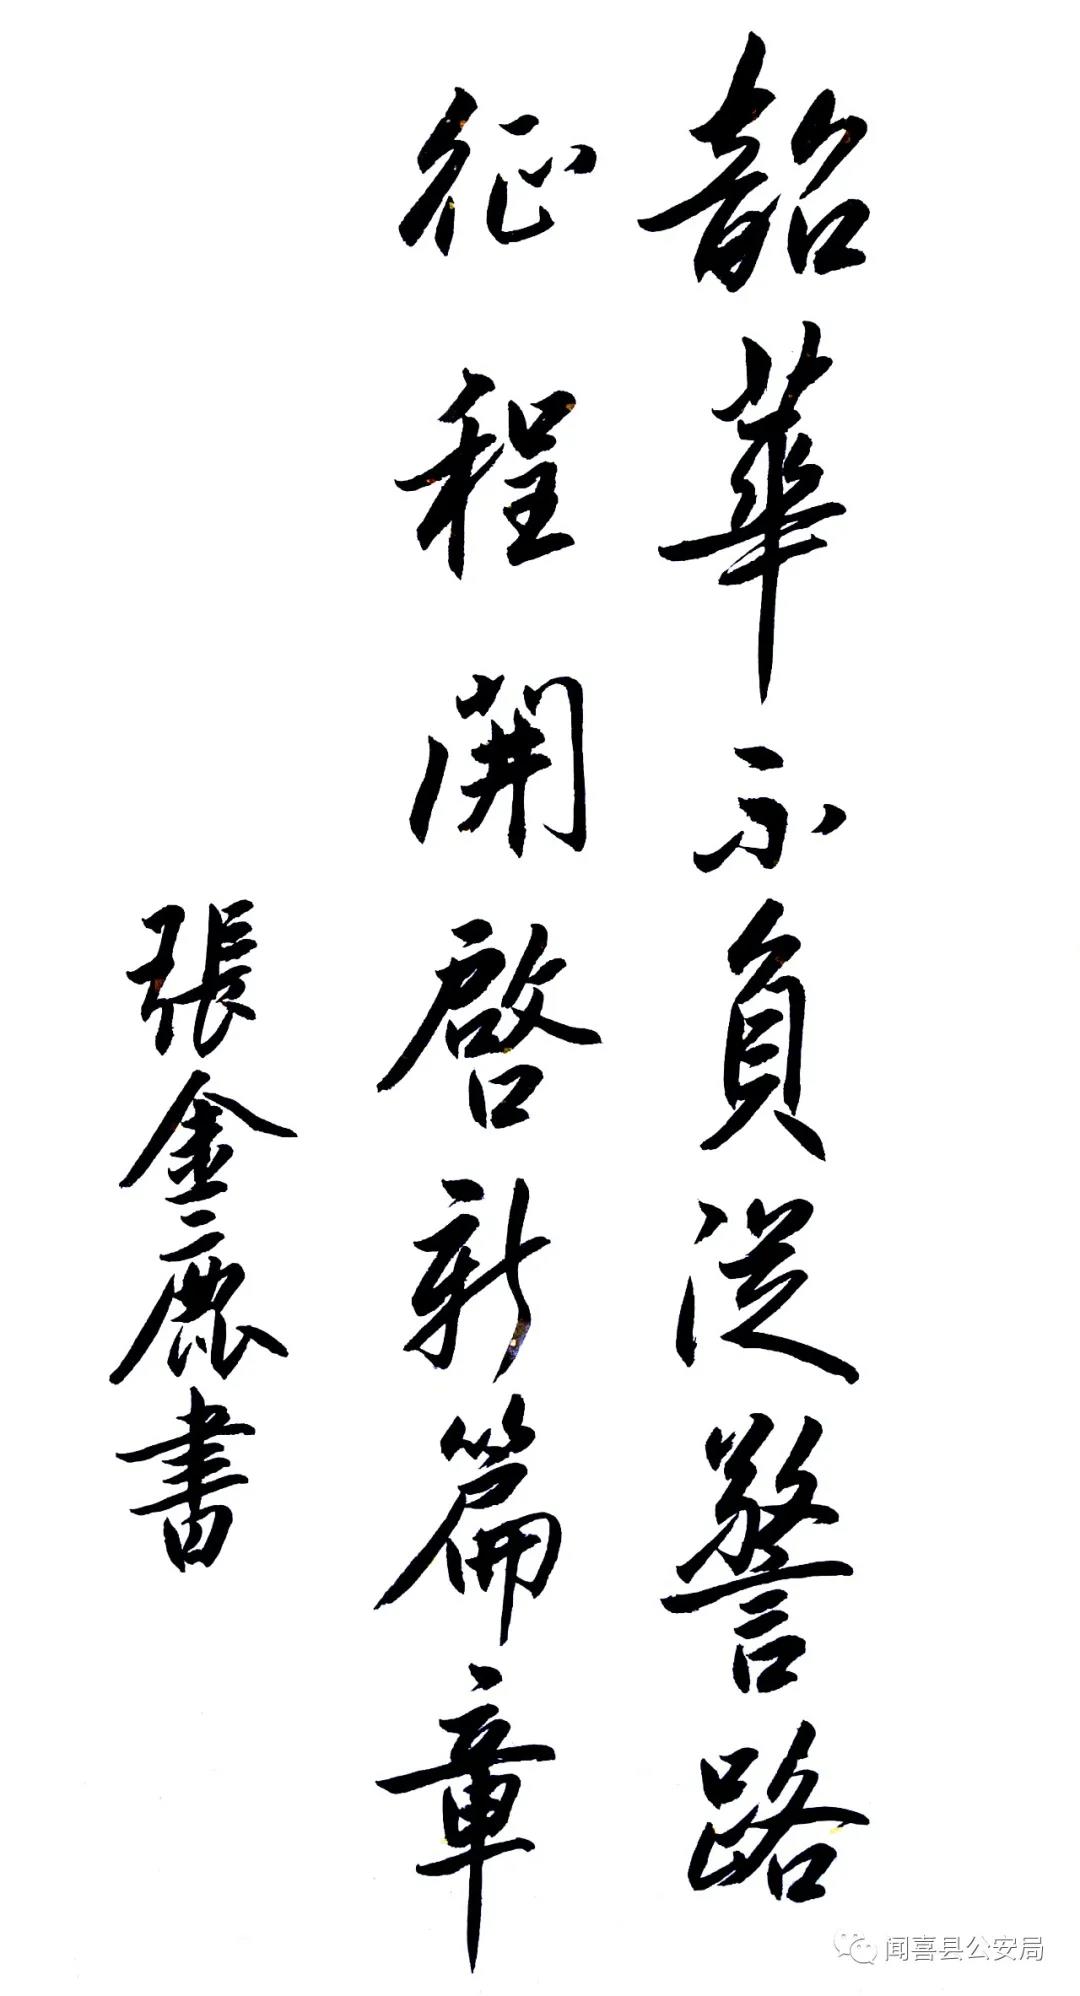 韶華不負從警路
征程開啓新篇章
張金麗書
闻喜县公安局